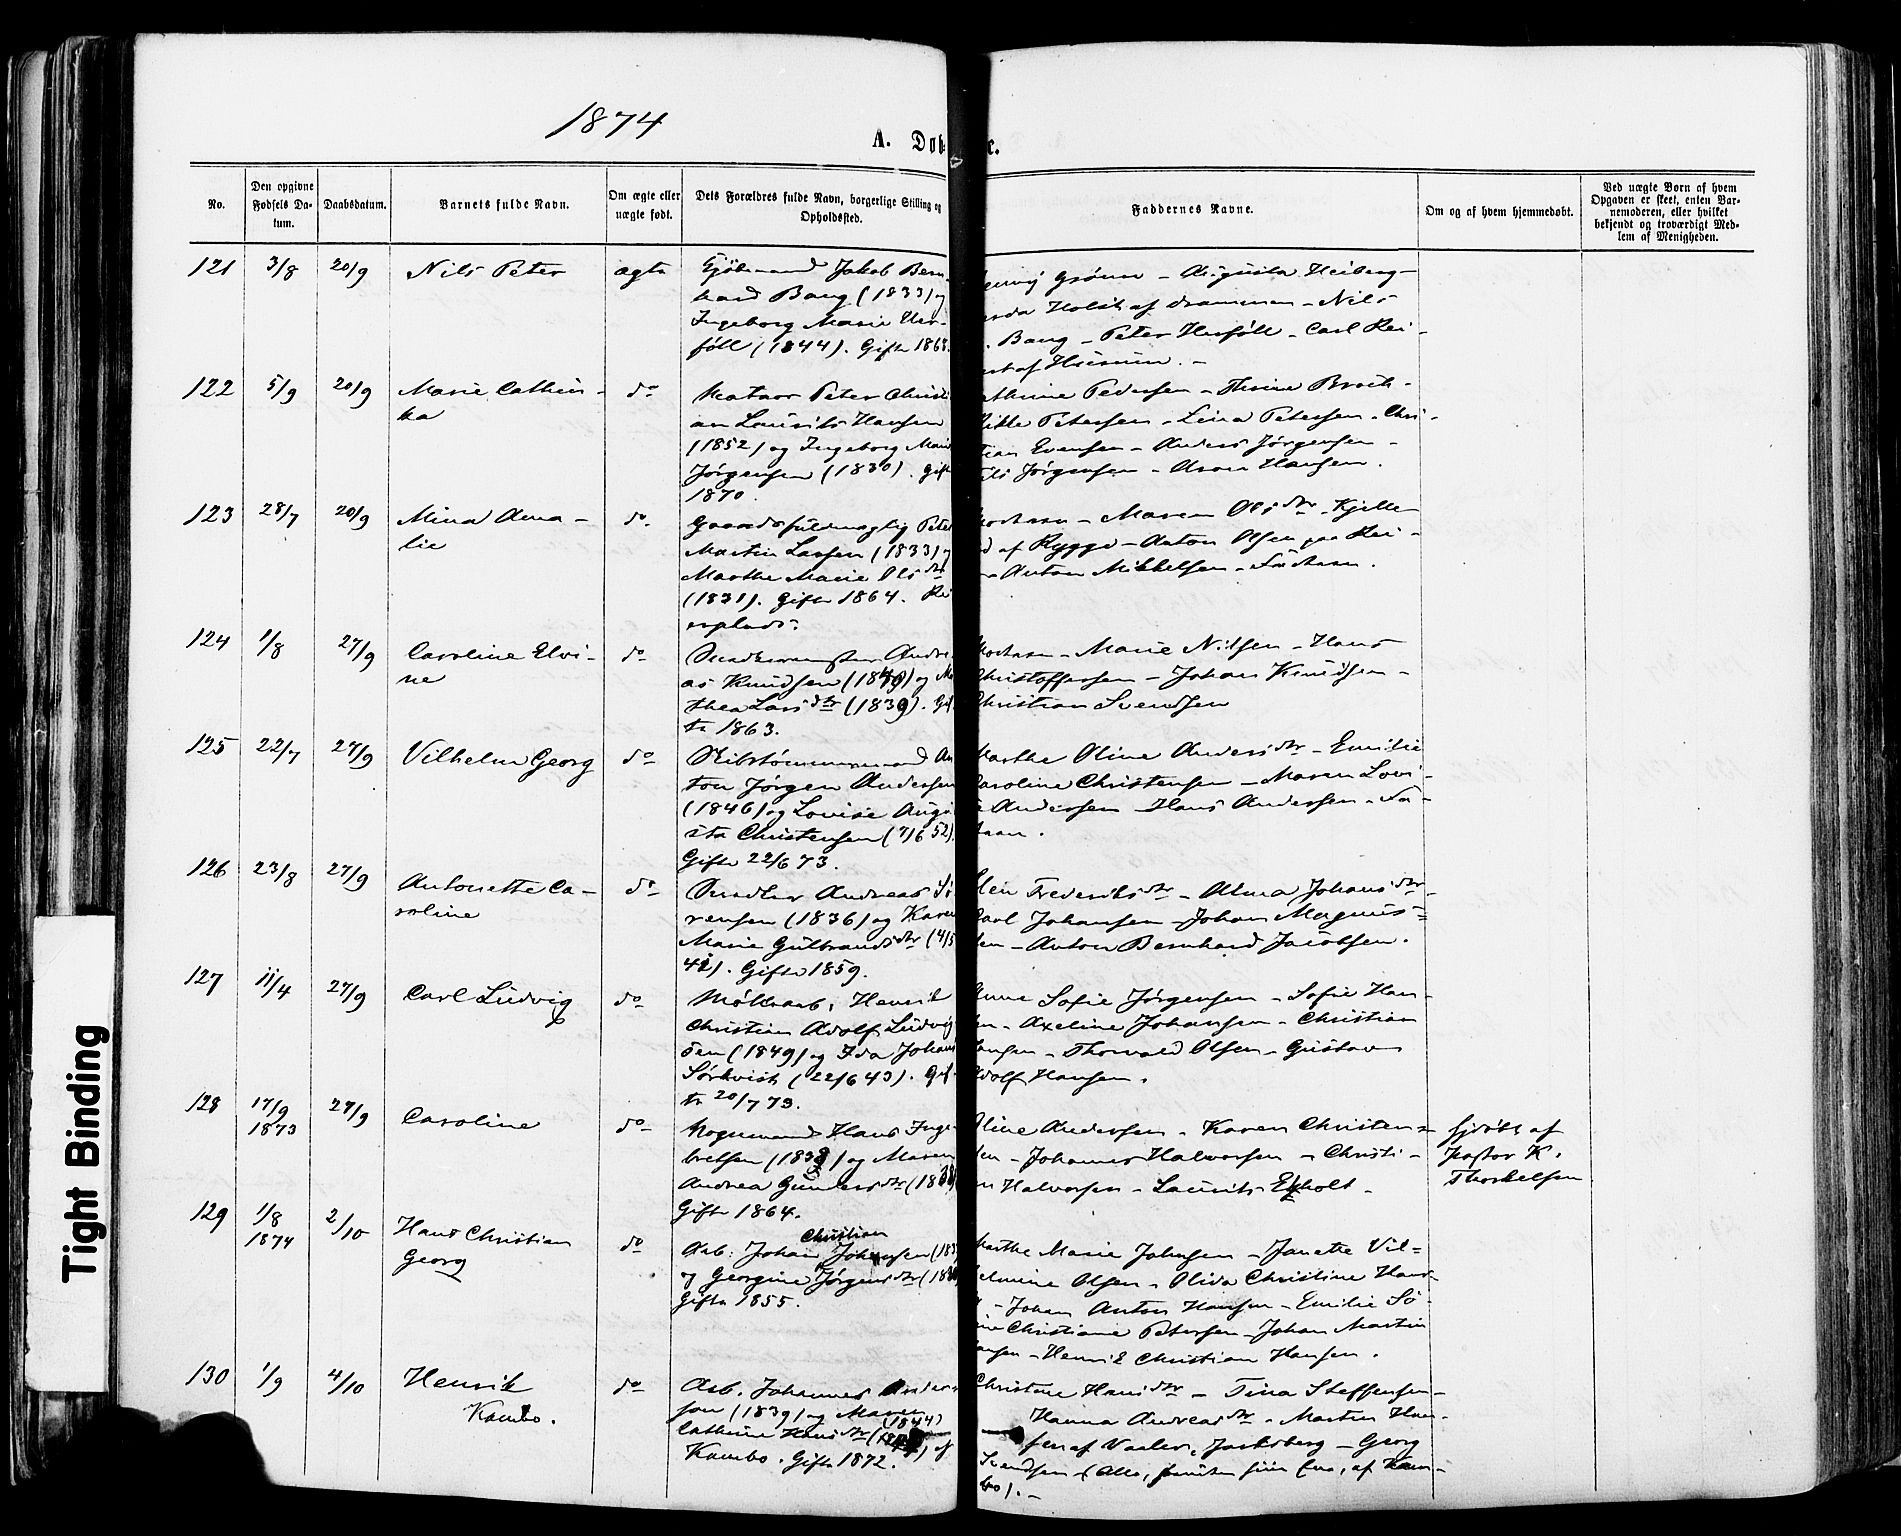 1874
A. Døb
e.
No.
Den opgivne Fødsels Da-
tum.
Daabsdatum.
Barnets fulde Navn.
Om ægte eller
uægte født.
Dets Forældres fulde Navn, borgerlige Stilling og
Opholdssted.
Faddernes Navne.
Om og af hvem hjemmedøbt.
Ved uægte Born af hvem
Opgaven er skeet, enten Bar-
nemoderen, eller hvilket
bekjendt og troværdigt Med-
lem af Menigheden.
121 3/8 20/9 Nils Peter ægte
Jakob Bern-
hard Bang (1833) og
Ingeborg Marie Her-
föll (1844). Gifte 1868.
Grönn - Augusta Heiberg -
Holst af Drammen - Nils
. Bang - Peter Herföll - Carl Rei-
af
122 5/9 20/9 Marie Cathin-
ka
do
Peter Christi
an Laurits Hansen
(1852) og Ingeborg Marie
Jørgensen (1830). Gift
1870.
athrine Pedersen - Thrine Broch -
Petersen - Lina Petersen - Chri-
tian Evensen - Anders Jørgensen -
Jørgensen - Aron Hansen.
123 28/7 20/9 Mina Ama-
lie
do.
Gaardsfuldmægtig Peter
Martin Larsen (1833) og
Marthe Marie Olsdtr
(1831). Gifte 1864. Rei
erplads.
Moderen - Maren Olsdtr - Kjelle-
d af Rygge - Anton Olsen paa Rei-
- Anton Mikkelsen - Faderen.
124 1/8 27/9 Caroline Elvi-
ne
do
Snedkermester Andre-
as Knudsen (1840) og Ma
thea Larsdtr (1839). Gif-
te 1863.
Moderen - Marie Nilsen - Hans
Christoffersen - Johan Knudsen -
Christian Svendsen
125 22/7 27/9 Vilhelm Georg do
Skibstömmermand An
ton Jørgen Andersen
(1846) og Lovise Augu
sta Christensen (7/6 52).
Gifte 22/6 73.
Marthe Oline Andersdtr - Emilie
Caroline Christensen - Maren Lovi-
e Andersen - Hans Andersen - Fa-
deren.
126 23/8 27/9 Antonette Ca-
roline
do
Snedker Andreas Sö
rensen (1836) og Karen
Marie Gulbrandsdtr (4/5
41). Gifte 1859.
Elen Frederiksdtr - Alma Johansdtr -
Carl Johansen - Johan Magnus-
sen - Anton Bernhard Jacobsen.
127 11/4 27/9 Carl Ludvig do
Möllearb. Henrik
Christian Adolf Ludvig
sen (1849) og Ida Johans
Sörkvist (22/6 43). Gif-
te 20/7 73.
Anne Sofie Jørgensen - Sofie Han-
sen - Axeline Johansen - Christian
Hansen - Thorvald Olsen - Gustav
Adolf Hansen.
128 17/9
1873
27/9 Caroline do
Hans Inge-
bretsen (1838) og Maren
Andrea Gundersdtr (1838)
Gifte 1864.
Oline Andersen - Karen Christen-
sen - Johannes Halvorsen - Christi-
an Halvorsen - Laurits Ekholt -
Hjdöbt af
Pastor K.
Thorkelsen
129 1/8
1874
2/10 Hans Christian
Georg
do
Christian
Arb. Johan Johansen (183
og Georgine Jørgensdtr (183
Gifte 1855.
Marthe Marie Johnsen - Janette Vil-
helmine Olsen - Olida Christine Han-
- Johan Anton Hansen - Emilie Sö-
ine Christiane Petersen - Johan Martin
Hansen - Henrik Christian Hansen.
130 1/9 4/10 Henrik
Kambo.
do
Arb. Johannes Ander
sen (1839) og Maren
(1844)
Cathrine Hansdtr af
Kambo. Gifte 1872.
Christine Hansdtr - Tina Steffensen -
Hanna Andreasdtr - Martin Han-
sen af Vaaler, - Georg
Svendsen - (Alle, af Kam-
bo). -
Tight Binding